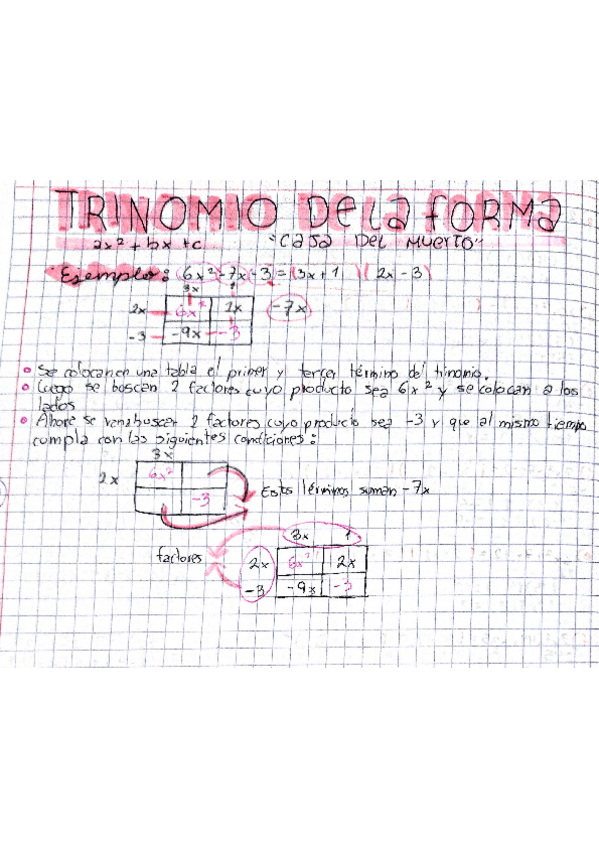 TRINOMIO DE La FORMA
ax² + bx + c "CaJa Del Muerto"
Ejemplo: (6x² - 7x - 3) = (3x + 1)(2x - 3)
3x 1
2x 6x² 2x -7x
-3 -9x -3
Se colocan en una tabla el primer y tercer término del trinomio.
Luego se buscan 2 factores cuyo producto sea 6x² y se colocan a los
lados
Ahora se van a buscar 2 factores cuyo producto sea -3 y que al mismo tiempo
cumpla con las siguientes condiciones:
3x
2x 6x²
-3 Estos términos suman -7x
3x 1
factores 2x 6x² 2x
-3 -9x -3